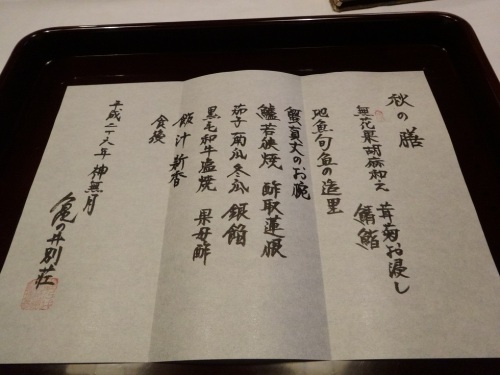 秋の膳
無花果胡麻和え 茸菊お浸し
鯖鮨
地魚旬魚の造里
蟹真丈のお椀
鱸若狭焼 酢取蓮根
茄子南瓜冬瓜 銀餡
黒毛和牛塩焼 果母酢
飯 汁 新香
食後
平成二十八年 神無月
亀の井別荘